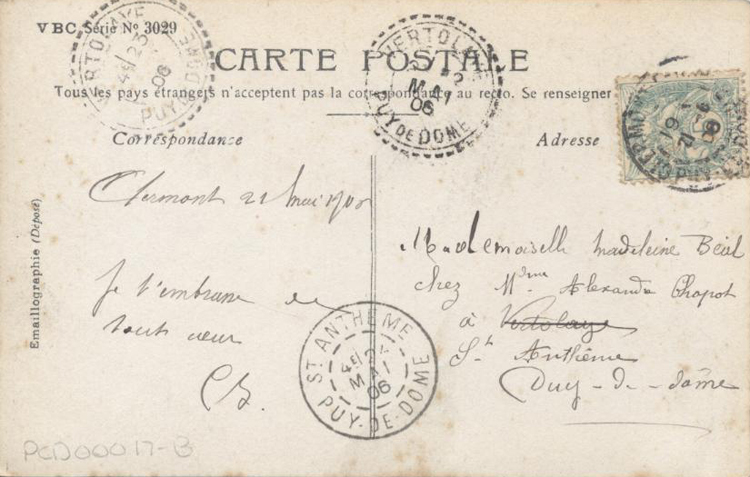 VBC Série Nº 3029
CARTE POSTALE
Tous les pays étrangers n'acceptent pas la correspondance au recto. Se renseigner
Correspondance
Adresse
VERTOLAYE
23
06
PUY DE DOME
VERTOLAYE
MAI
06
PUY DE DOME
19
21
06
Clermont 21 Mai 1906
Je t'embrasse de
tout cœur
CB.
Mademoiselle Madeleine Béal
chez Mdme Alexandre Chapot
à Vertolaye
Ste Anthème
Puy-de-dôme
ST ANTHÈME
MAI
06
PUY-DE-DOME
Emaillographie (Déposé)
PCD00017-B